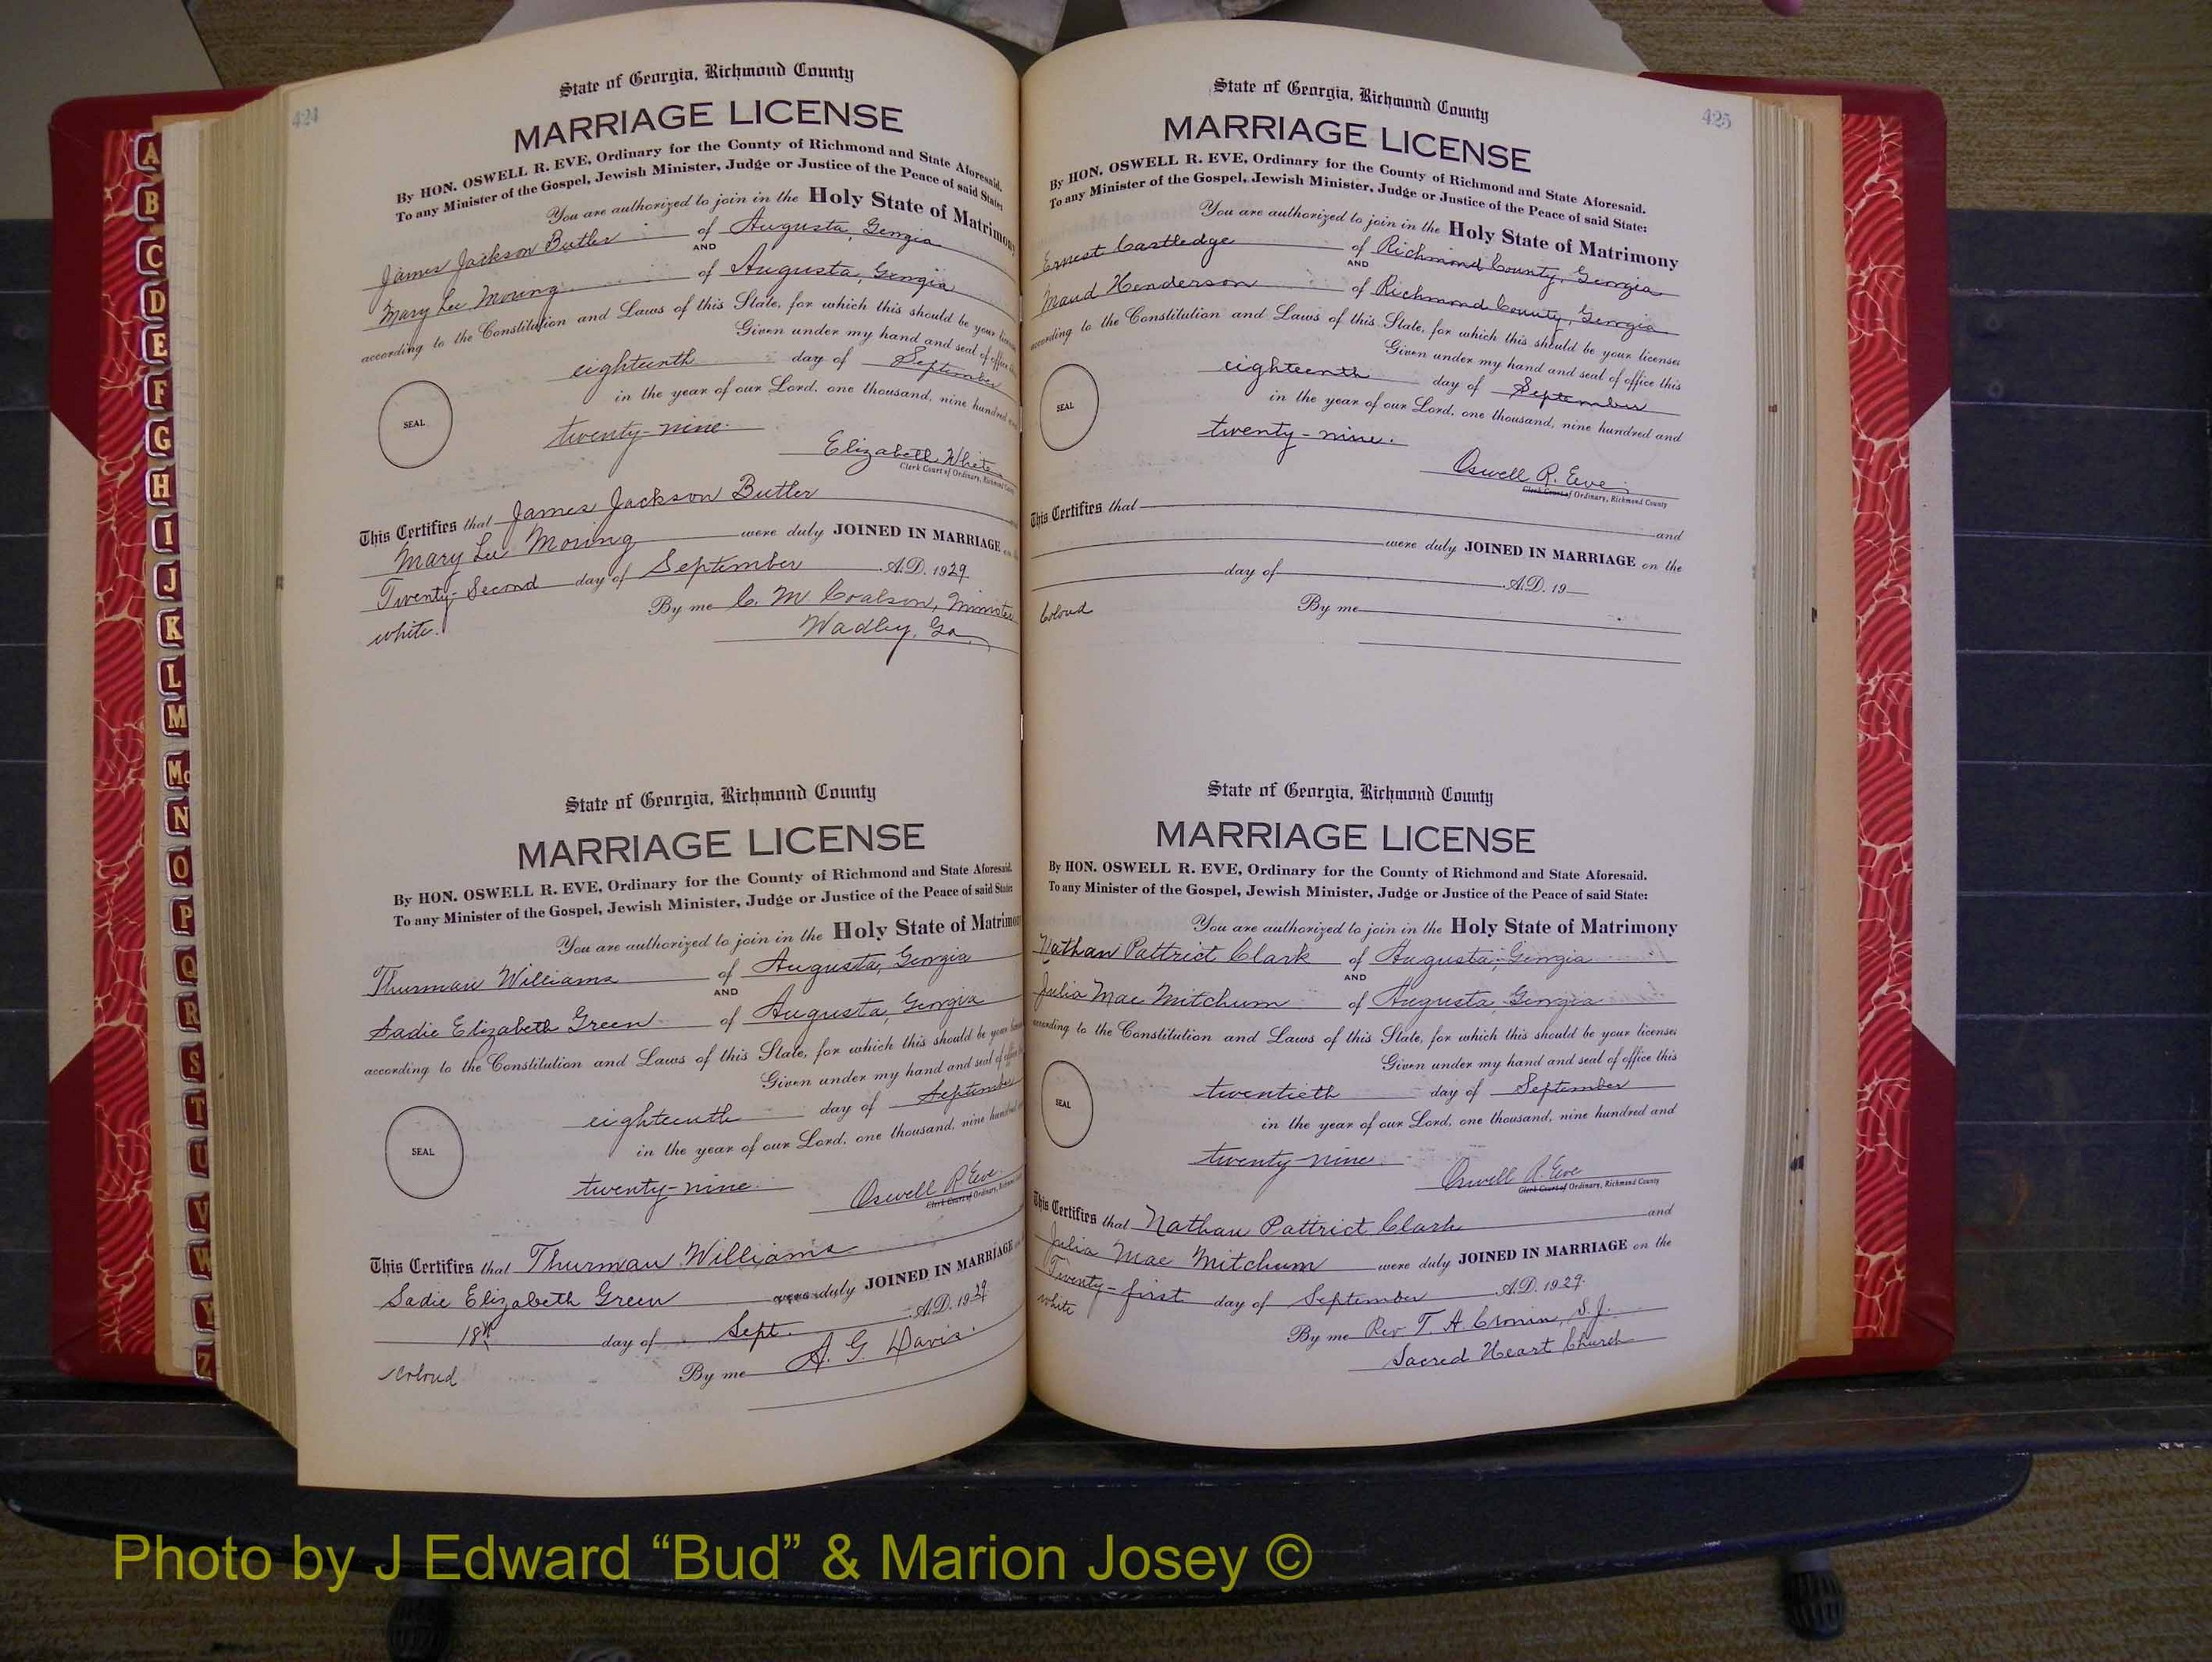 424
State of Georgia, Richmond County
MARRIAGE LICENSE
By HON. OSWELL R. EVE, Ordinary for the County of Richmond and State Aforesaid.
To any Minister of the Gospel, Jewish Minister, Judge or Justice of the Peace of said State:
You are authorized to join in the Holy State of Matrimony
James Jackson Butler of Augusta, Georgia
AND
Mary Lee Moring of Augusta, Georgia
according to the Constitution and Laws of this State, for which this should be your license
Given under my hand and seal of office
eighteenth day of September
in the year of our Lord, one thousand, nine hundred and
SEAL
twenty-nine.
Elizabeth White
Clerk Court of Ordinary, Richmond County
This Certifies that James Jackson Butler
Mary Lee Moring were duly JOINED IN MARRIAGE on
Twenty-Second day of September A.D. 1929
By me C. M. Coalson, Minister
white. Wadley, Ga.
State of Georgia, Richmond County
MARRIAGE LICENSE
By HON. OSWELL R. EVE, Ordinary for the County of Richmond and State Aforesaid.
To any Minister of the Gospel, Jewish Minister, Judge or Justice of the Peace of said State:
You are authorized to join in the Holy State of Matrimony
Thurman Williams of Augusta, Georgia
AND
Sadie Elizabeth Green of Augusta, Georgia
according to the Constitution and Laws of this State, for which this should be your
Given under my hand and seal of office
eighteenth day of September
in the year of our Lord, one thousand, nine hundred
SEAL
twenty-nine.
Oswell R. Eve
Clerk Court of Ordinary, Richmond
This Certifies that Thurman Williams
Sadie Elizabeth Green were duly JOINED IN MARRIAGE
18th day of Sept. A.D. 1929
Colored By me A. G. Davis.
425
State of Georgia, Richmond County
MARRIAGE LICENSE
By HON. OSWELL R. EVE, Ordinary for the County of Richmond and State Aforesaid.
To any Minister of the Gospel, Jewish Minister, Judge or Justice of the Peace of said State:
You are authorized to join in the Holy State of Matrimony
Ernest Castledge of Richmond County, Georgia
AND
Maud Henderson of Richmond County, Georgia
according to the Constitution and Laws of this State, for which this should be your licenses
Given under my hand and seal of office this
eighteenth day of September
in the year of our Lord, one thousand, nine hundred and
SEAL
twenty-nine.
Oswell R. Eve
Clerk Court of Ordinary, Richmond County
This Certifies that
and
were duly JOINED IN MARRIAGE on the
day of A.D. 19
Colored By me
State of Georgia, Richmond County
MARRIAGE LICENSE
By HON. OSWELL R. EVE, Ordinary for the County of Richmond and State Aforesaid.
To any Minister of the Gospel, Jewish Minister, Judge or Justice of the Peace of said State:
You are authorized to join in the Holy State of Matrimony
Nathan Pattrict Clark of Augusta, Georgia
AND
Julia Mae Mitchum of Augusta, Georgia
according to the Constitution and Laws of this State, for which this should be your licenses
Given under my hand and seal of office this
twentieth day of September
in the year of our Lord, one thousand, nine hundred and
SEAL
twenty-nine.
Oswell R. Eve
Clerk Court of Ordinary, Richmond County
This Certifies that Nathan Pattrict Clark and
Julia Mae Mitchum were duly JOINED IN MARRIAGE on the
Twenty-first day of September A.D. 1929.
white
By me Rev T. A. Cronin, S.J.
Sacred Heart Church
A
B
C
D
E
F
G
H
I
J
K
L
M
Mc
N
O
P
Q
R
S
T
U
V
W
Y
Z
Photo by J Edward “Bud” & Marion Josey ©